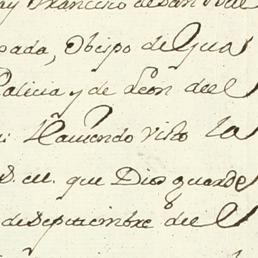 ay Francisco de San
pada, Obispo de Gua
Galicia y de Leon del
Haviendo visto la
D. M. que Dios guarde
de Septiembre del